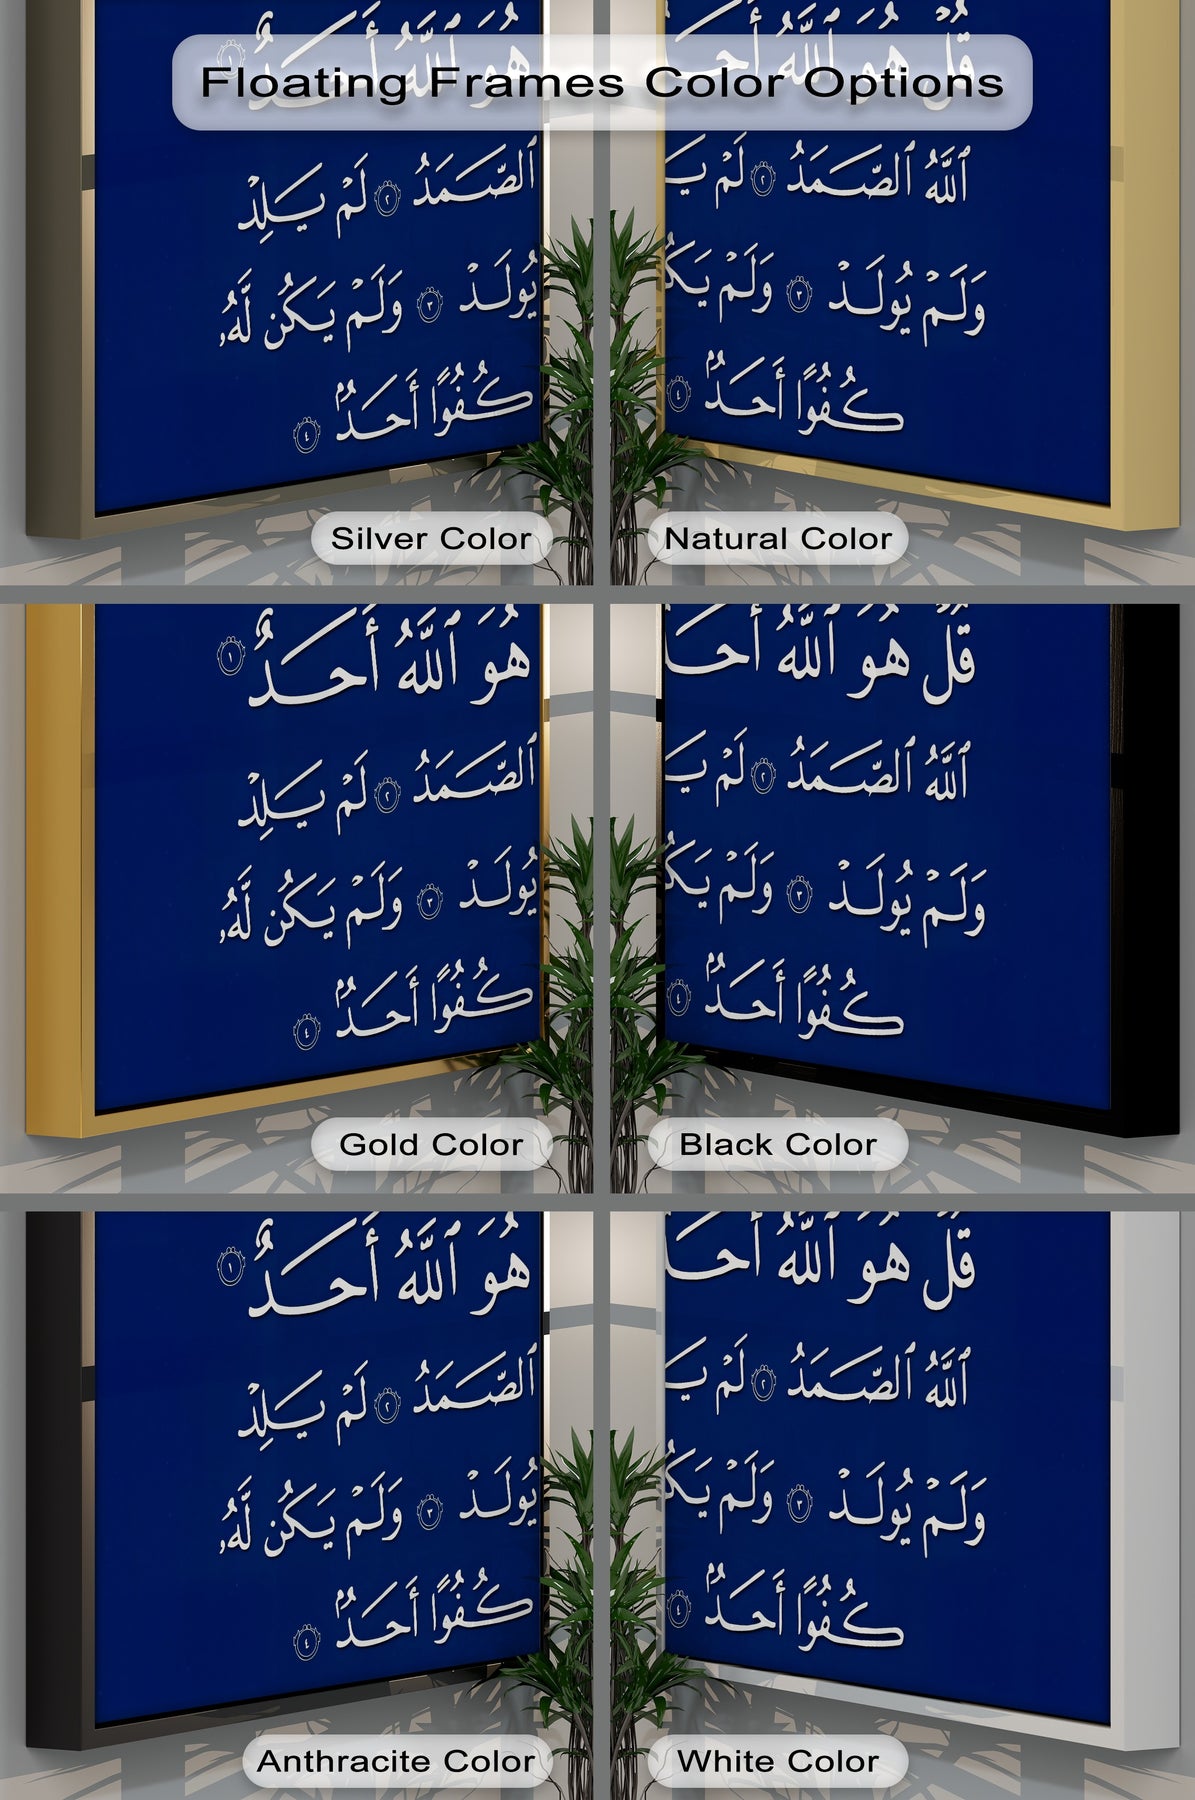 Floating Frames Color Options
هُوَ ٱللَّهُ أَحَدٌ ١
ٱلصَّمَدُ ٢ لَمْ يَلِدْ
يُولَدْ ٣ وَلَمْ يَكُن لَّهُۥ
كُفُوًا أَحَدٌۢ ٤
Silver Color
قُلْ هُوَ ٱللَّهُ أَحَـ
ٱللَّهُ ٱلصَّمَدُ ٢ لَمْ يَـ
وَلَمْ يُولَدْ ٣ وَلَمْ يَكُـ
كُفُوًا أَحَدٌۢ ٤
Natural Color
هُوَ ٱللَّهُ أَحَدٌ ١
ٱلصَّمَدُ ٢ لَمْ يَلِدْ
يُولَدْ ٣ وَلَمْ يَكُن لَّهُۥ
كُفُوًا أَحَدٌۢ ٤
Gold Color
قُلْ هُوَ ٱللَّهُ أَحَـ
ٱللَّهُ ٱلصَّمَدُ ٢ لَمْ يَـ
وَلَمْ يُولَدْ ٣ وَلَمْ يَكُـ
كُفُوًا أَحَدٌۢ ٤
Black Color
هُوَ ٱللَّهُ أَحَدٌ ١
ٱلصَّمَدُ ٢ لَمْ يَلِدْ
يُولَدْ ٣ وَلَمْ يَكُن لَّهُۥ
كُفُوًا أَحَدٌۢ ٤
Anthracite Color
قُلْ هُوَ ٱللَّهُ أَحَـ
ٱللَّهُ ٱلصَّمَدُ ٢ لَمْ يَـ
وَلَمْ يُولَدْ ٣ وَلَمْ يَكُـ
كُفُوًا أَحَدٌۢ ٤
White Color